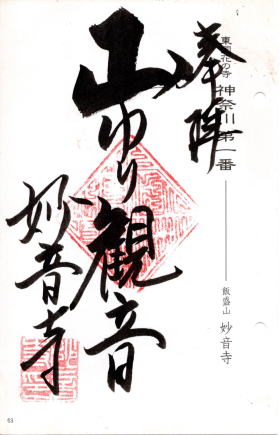 東国花の寺 神奈川第一番
飯盛山 妙音寺
奉拝
山ゆり観音
妙音寺
63